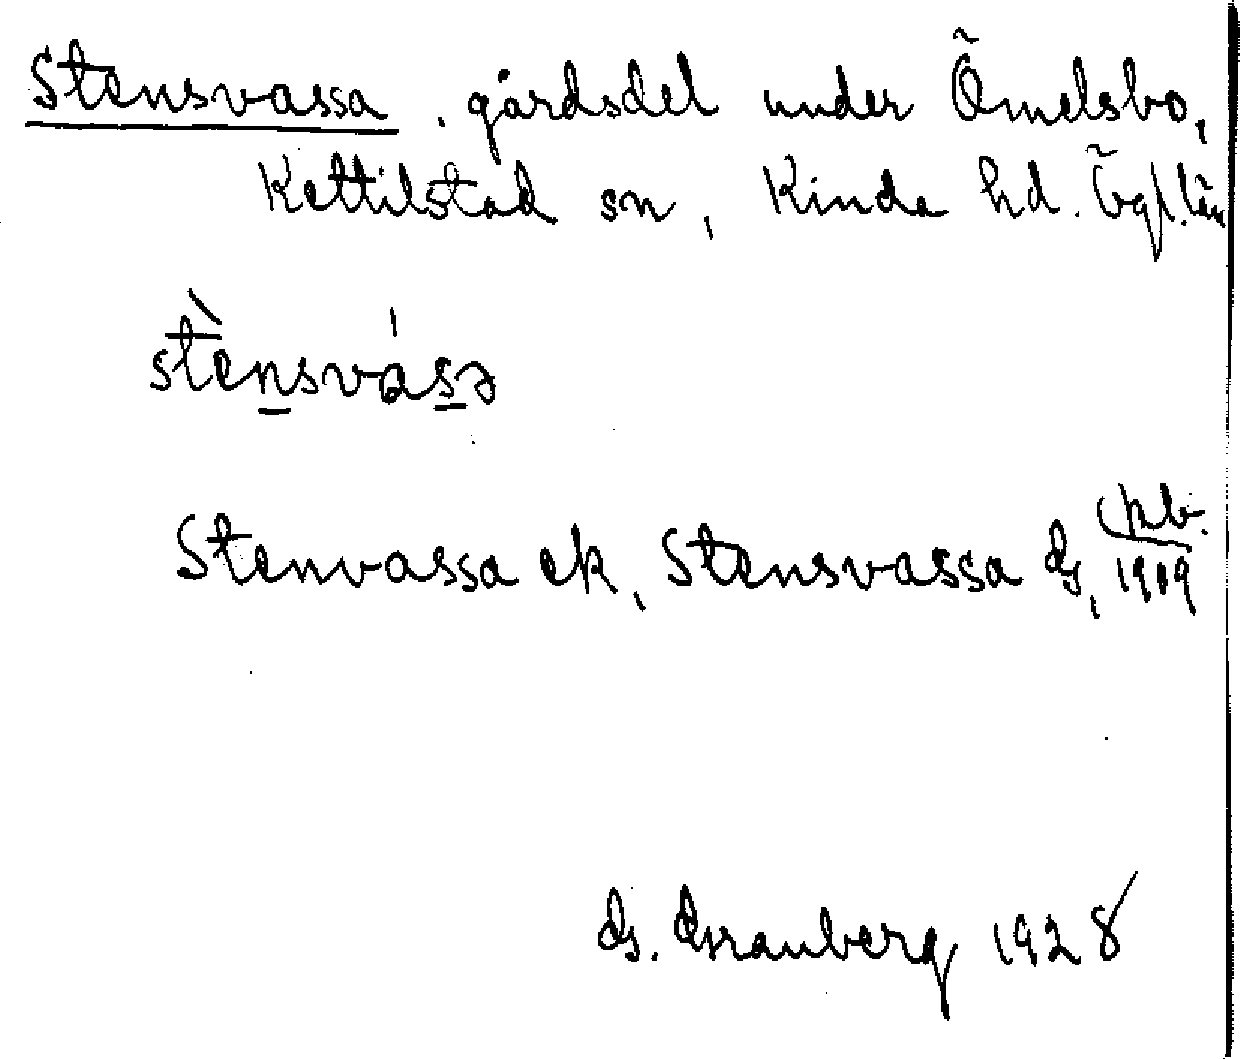 Stensvassa, gårdsdel under Ömelsbo,
Kettilstad sn, Kinda hd. Ögl. län
stènsvásə
Stenvassa ek, Stensvassa
1909
1928